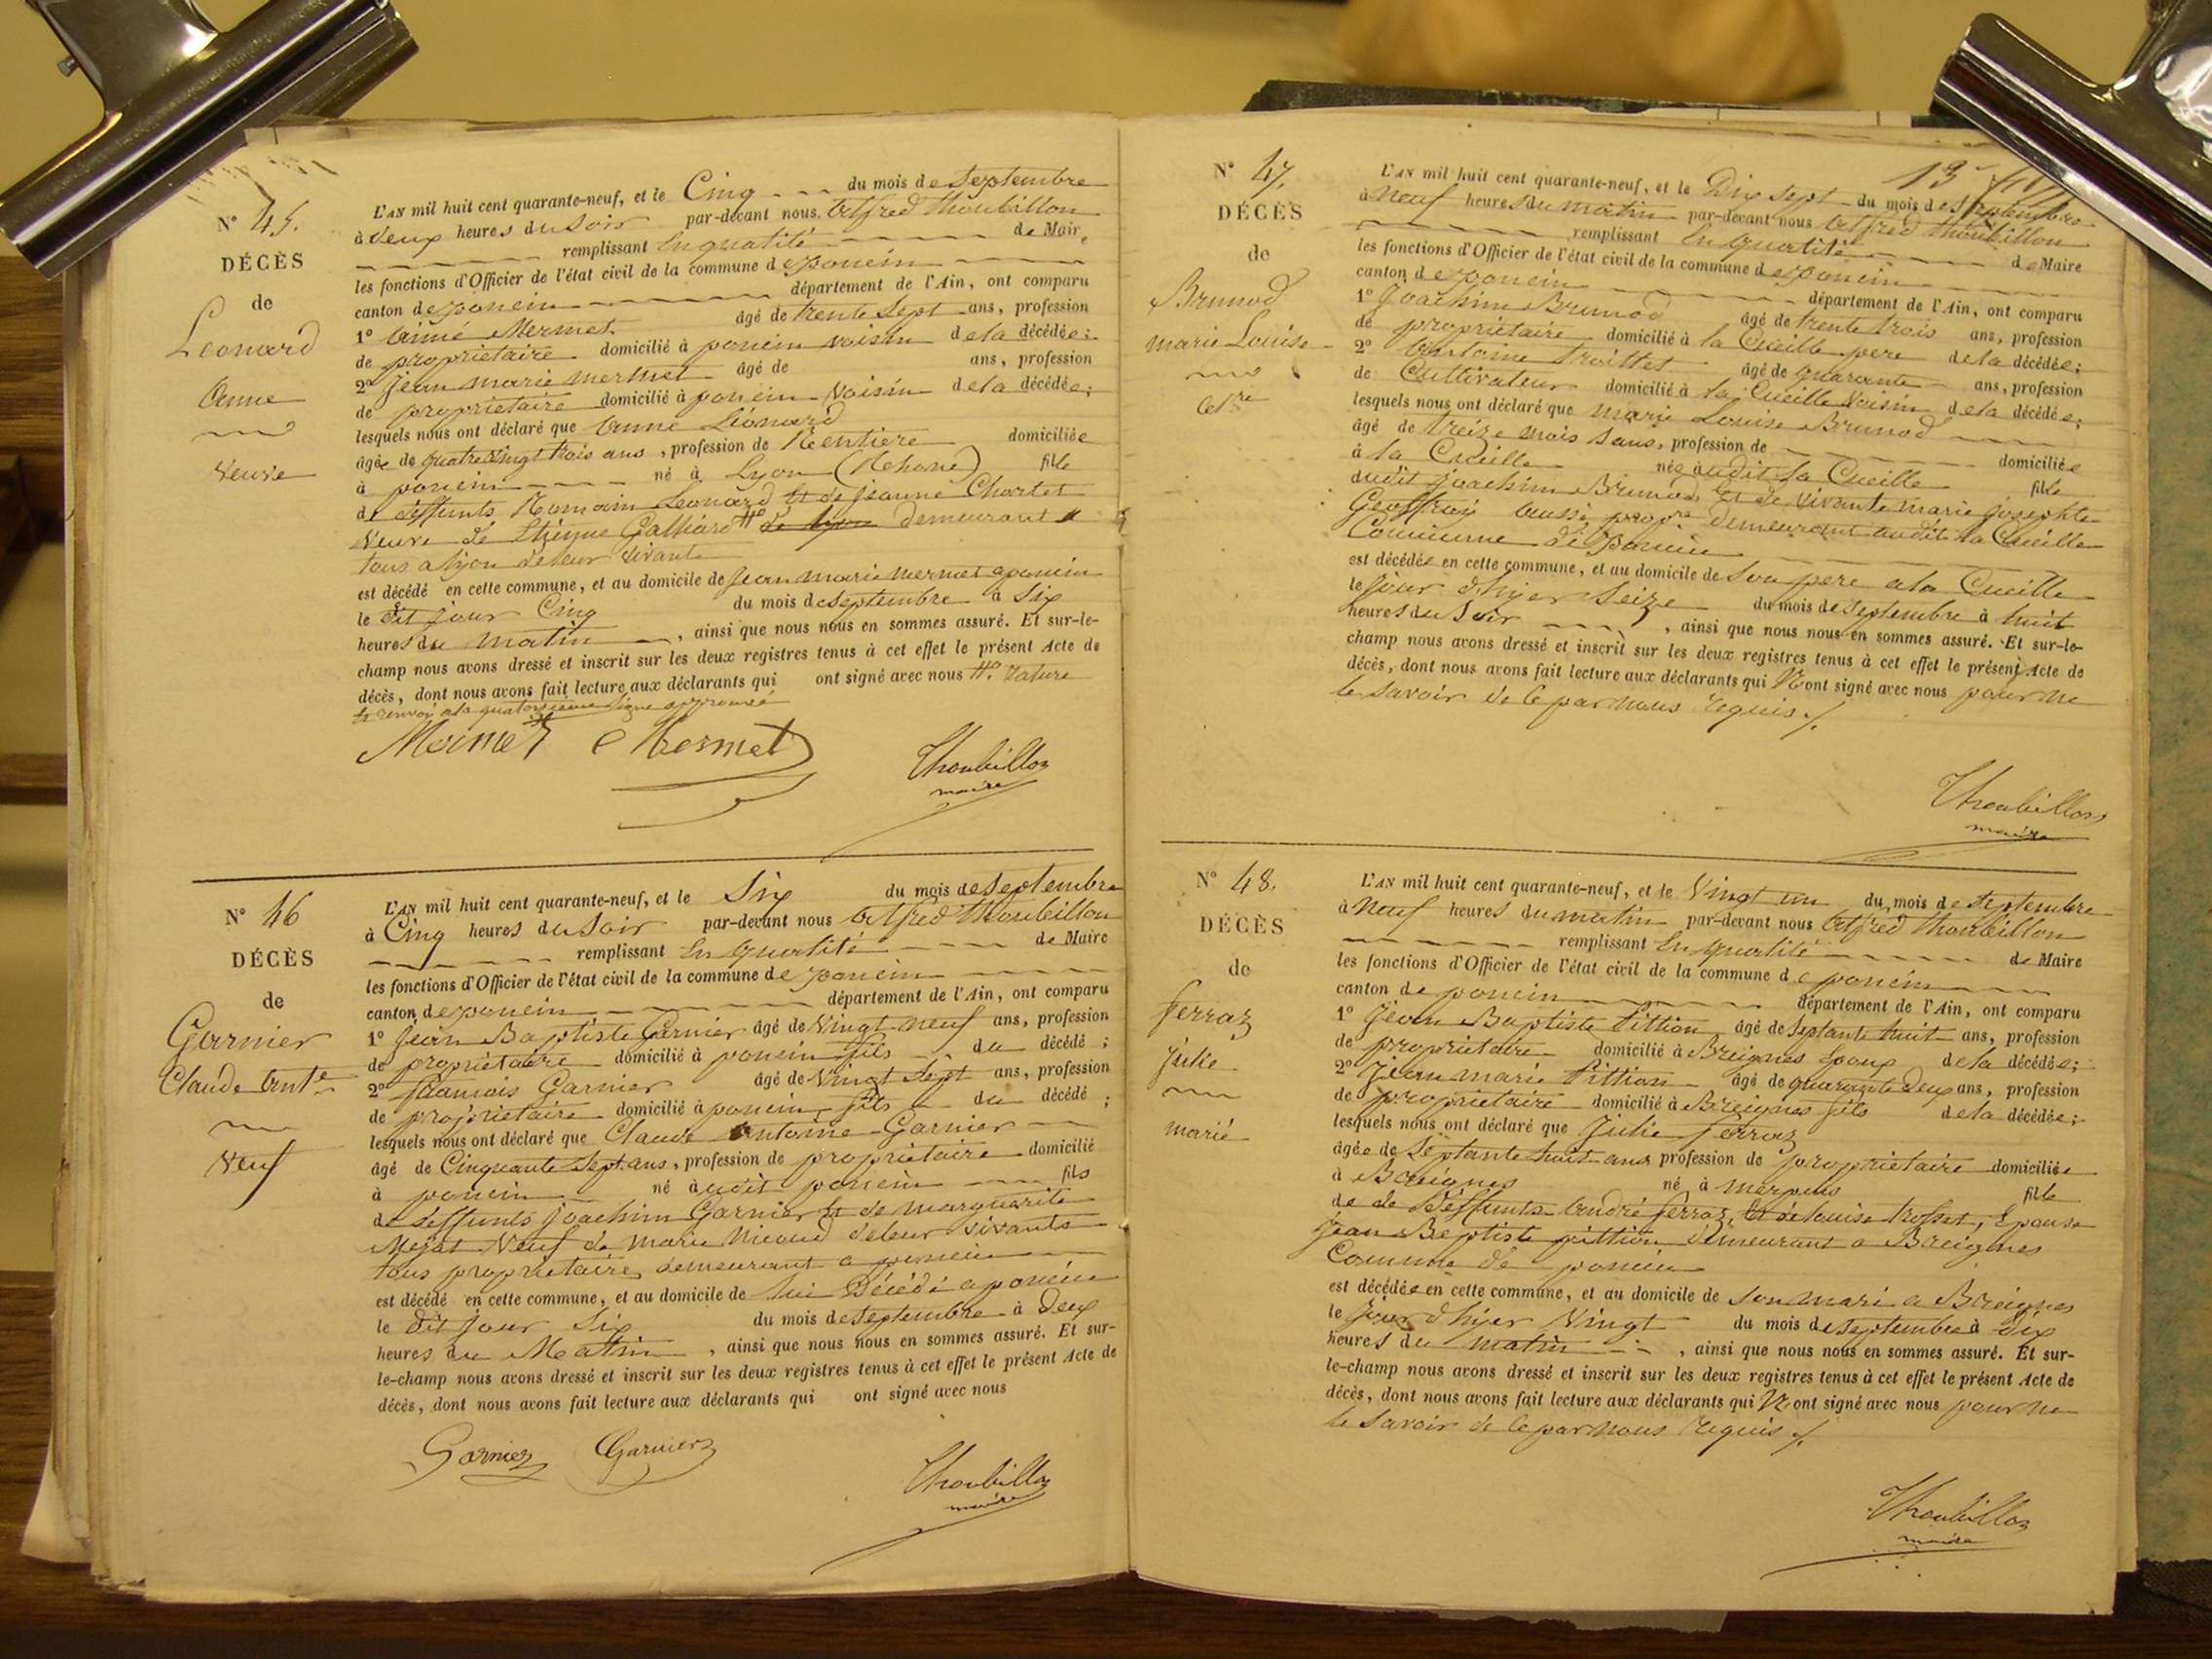 N° 45.
DÉCÈS
de
Leonard
Anne
veuve
L'AN mil huit cent quarante-neuf, et le Cinq du mois de septembre
à deux heures du soir par-devant nous Alfred Thoubillon
remplissant En qualité de Maire
les fonctions d'Officier de l'état civil de la commune de poncin
canton de poncin département de l'Ain, ont comparu
1° Aimé Mermet âgé de trente sept ans, profession
de propriétaire domicilié à poncin voisin de la décédée;
2° Jean marie mermet âgé de ans, profession
de propriétaire domicilié à poncin Voisin de la décédée;
lesquels nous ont déclaré que Anne Léonard
âgée de quatre vingt trois ans, profession de Rentiere domiciliée
à poncin né à Lyon (Rehone) fille
de deffunts Romain Leonard Et de jeanne Chartet
veuve de Etienne Galliard de Lyon demeurant
tous a lyon de leur vivant
est décédé en cette commune, et au domicile de Jean marie mermet a poncin
le dit jour Cinq du mois de septembre à Six
heures du matin, ainsi que nous nous en sommes assuré. Et sur-le-
champ nous avons dressé et inscrit sur les deux registres tenus à cet effet le présent Acte de
décès, dont nous avons fait lecture aux déclarants qui ont signé avec nous rature
et renvoi a la quatorzieme ligne approuvé
Mermet Mermet
Thoubillon
maire
N° 46
DÉCÈS
de
Garnier
Claude Ant.e
veuf
L'AN mil huit cent quarante-neuf, et le Six du mois de septembre
à Cinq heures du Soir par-devant nous Alfred Thoubillon
remplissant En qualité de Maire
les fonctions d'Officier de l'état civil de la commune de poncin
canton de poncin département de l'Ain, ont comparu
1° Jean Baptiste Garnier âgé de Vingt neuf ans, profession
de propriétaire domicilié à poncin fils du décédé;
2° francois Garnier âgé de vingt sept ans, profession
de propriétaire domicilié à poncin fils du décédé;
lesquels nous ont déclaré que Claude Antoine Garnier
âgé de Cinquante Sept ans, profession de propriétaire domicilié
à poncin né audit poncin fils
de deffunts joachim Garnier Et de marguerite
Mejat Veuf de marie Nicoud de leur vivants
tous propriétaires demeurant a poncin
est décédé en cette commune, et au domicile de lui Décédé a poncin
le dit jour Six du mois de septembre à Deux
heures du Matin, ainsi que nous nous en sommes assuré. Et sur-
le-champ nous avons dressé et inscrit sur les deux registres tenus à cet effet le présent Acte de
décès, dont nous avons fait lecture aux déclarants qui ont signé avec nous
Garnier Garnier
Thoubillon
maire
13
N° 47.
DÉCÈS
de
Brunod
marie Louise
Cel.re
L'AN mil huit cent quarante-neuf, et le Dix Sept du mois de septembre
à Neuf heures du matin par-devant nous Alfred Thoubillon
remplissant En qualité de Maire
les fonctions d'Officier de l'état civil de la commune de poncin
canton de poncin département de l'Ain, ont comparu
1° Joachim Brunod âgé de trente trois ans, profession
de propriétaire domicilié à la Cueille pere de la décédée;
2° Antoine Troittet âgé de quarante ans, profession
de Cultivateur domicilié à la Cueille Voisin de la décédée;
lesquels nous ont déclaré que marie Louise Brunod
âgé de treize mois Sans, profession de domiciliée
à la Cueille née audit la Cueille fille
dudit joachim Brunod Et de vivante marie josephte
Geoffray aussi prop.re demeurant audit la Cueille
Commune de Poncin
est décédée en cette commune, et au domicile de Son pere a la Cueille
le Jour d'hyer Seize du mois de septembre à huit
heures du Soir, ainsi que nous nous en sommes assuré. Et sur-le-
champ nous avons dressé et inscrit sur les deux registres tenus à cet effet le présent Acte de
décès, dont nous avons fait lecture aux déclarants qui N'ont signé avec nous pour ne
le savoir de ce par nous requis ./.
Thoubillon
maire
N° 48.
DÉCÈS
de
ferraz
julie
marié
L'AN mil huit cent quarante-neuf, et le Vingt un du mois de septembre
à Neuf heures du matin par-devant nous Alfred Thoubillon
remplissant En qualité de Maire
les fonctions d'Officier de l'état civil de la commune de poncin
canton de poncin département de l'Ain, ont comparu
1° Jean Baptiste Pittion âgé de Septante huit ans, profession
de propriétaire domicilié à Breignes Epoux de la décédée;
2° Jean marie Pittion âgé de quarante deux ans, profession
de propriétaire domicilié à Breignes fils de la décédée;
lesquels nous ont déclaré que Julie ferraz
âgée de Septante huit ans profession de propriétaire domiciliée
à Breignes né à merpuis fille
de de Deffunts André ferraz, Et de louise trosset, Epouse
Jean Baptiste pittion demeurant a Breignes
Commune de poncin
est décédée en cette commune, et au domicile de Son mari a Breignes
le jour d'hyer Vingt du mois de septembre à dix
heures du matin, ainsi que nous nous en sommes assuré. Et sur-
le-champ nous avons dressé et inscrit sur les deux registres tenus à cet effet le présent Acte de
décès, dont nous avons fait lecture aux déclarants qui N'ont signé avec nous pour ne
le Savoir de ce par nous requis ./.
Thoubillon
maire